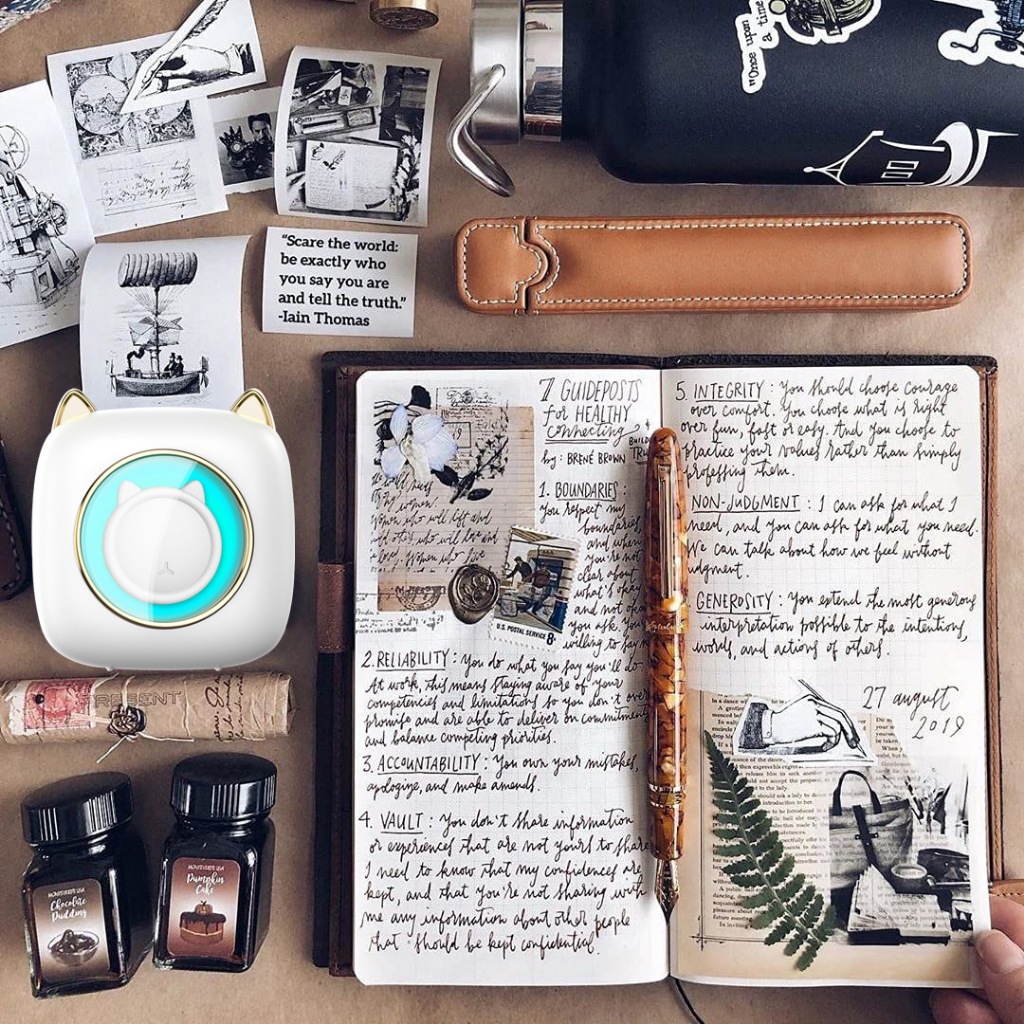 "Once upon
a time"
"Scare the world:
be exactly who
you say you are
and tell the truth."
-Iain Thomas
7 GUIDEPOSTS
for HEALTHY
connecting
by: BRENÉ BROWN
1. BOUNDARIES:
you respect my
boundaries,
and when
you're not
clear about
what's okay
and not okay
you ask. You're
willing to say no
U.S. POSTAL SERVICE 8¢
2. RELIABILITY: You do what you say you'll do.
At work, this means staying aware of your
competencies and limitations so you don't over
promise and are able to deliver on commitments
and balance competing priorities.
3. ACCOUNTABILITY: You own your mistakes,
apologize, and make amends.
4. VAULT: You don't share information
or experiences that are not yours to share
I need to know that my confidences are
kept, and that you're not sharing with
me any information about other people
that should be kept confidential.
5. INTEGRITY: You should choose courage
over comfort. You choose what is right
over fun, fast or easy. And you choose to
practice your values rather than simply
professing them.
NON-JUDGMENT: I can ask for what I
need, and you can ask for what you need.
We can talk about how we feel without
judgment.
GENEROSITY: You extend the most generous
interpretation possible to the intentions,
words, and actions of others.
27 august
2019
PRESENT
Chocolate
Pudding
Pumpkin
Cake